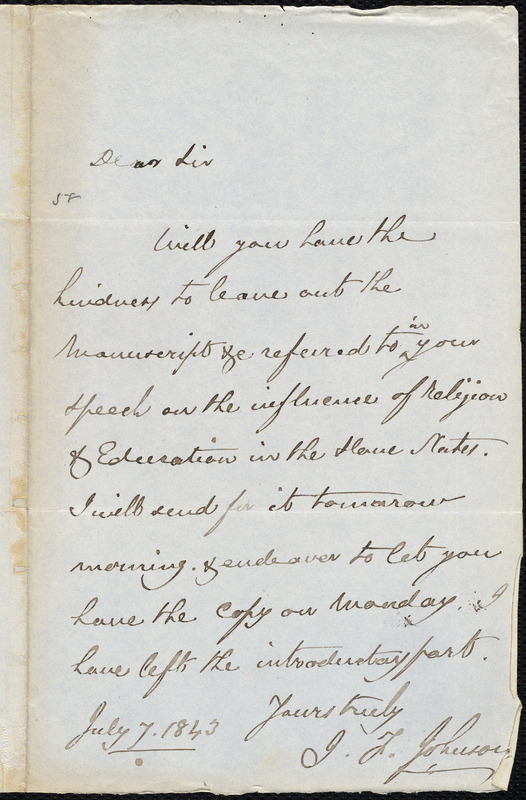 Dear Sir
58
Will you have the
kindness to leave out the
Manuscript &c referred to in your
speech on the influence of Religion
& Education in the Slave States.
I will send for it tomarow
morning. & endeaver to let you
have the Copy on Monday. I
have left the introductay part.
Yours truly
July 7. 1843
J. F. Johnson